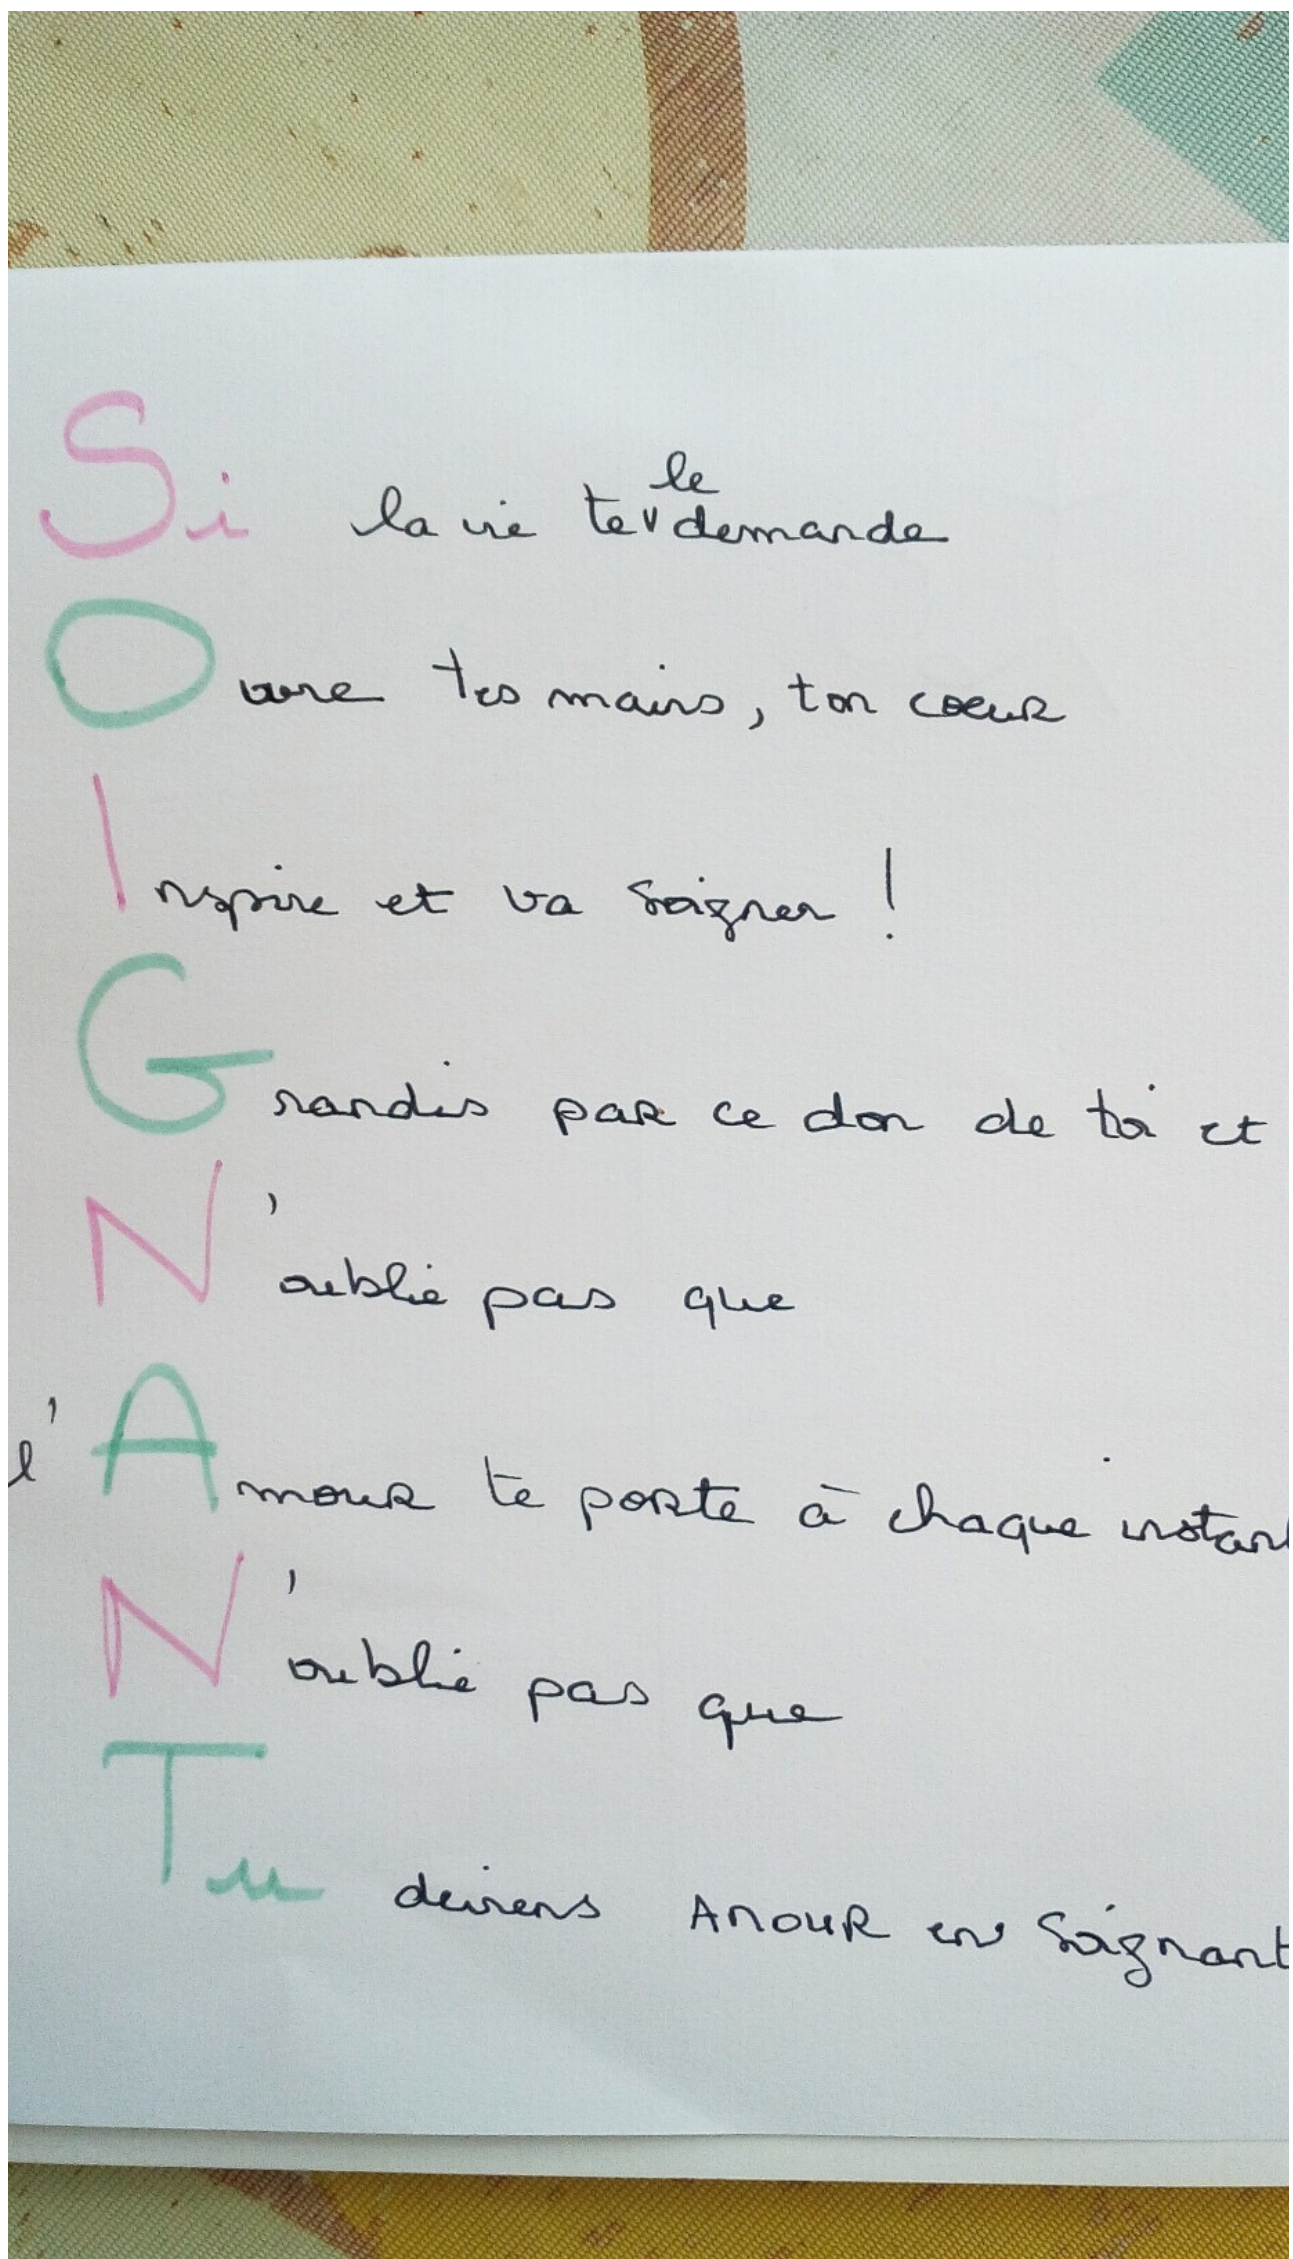 Si la vie te le demande
Ouvre tes mains, ton coeur
Inspire et va soigner !
Grandis par ce don de toi et
N'oublie pas que
l'Amour te porte à chaque instant
N'oublie pas que
Tu deviens AMOUR en soignant